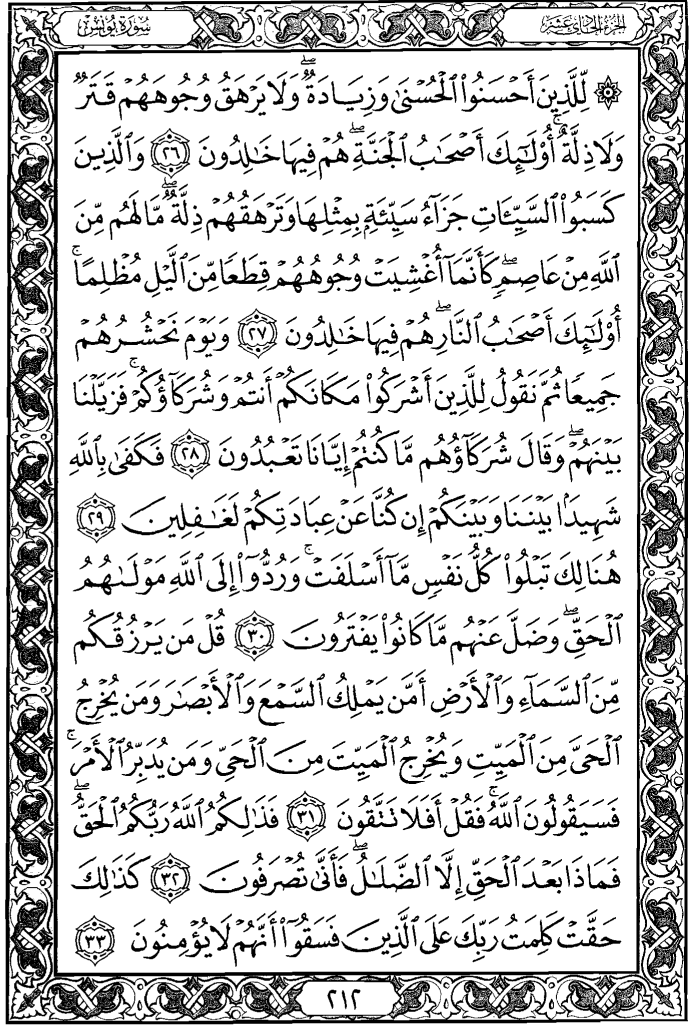 الجزء الحادي عشر
سورة يونس
۞ لِّلَّذِينَ أَحْسَنُوا۟ ٱلْحُسْنَىٰ وَزِيَادَةٌۖ وَلَا يَرْهَقُ وُجُوهَهُمْ قَتَرٌ
وَلَا ذِلَّةٌۚ أُو۟لَٰٓئِكَ أَصْحَٰبُ ٱلْجَنَّةِۖ هُمْ فِيهَا خَٰلِدُونَ ٢٦ وَٱلَّذِينَ
كَسَبُوا۟ ٱلسَّيِّـَٔاتِ جَزَآءُ سَيِّئَةٍۭ بِمِثْلِهَا وَتَرْهَقُهُمْ ذِلَّةٌۖ مَّا لَهُم مِّنَ
ٱللَّهِ مِنْ عَاصِمٍۖ كَأَنَّمَآ أُغْشِيَتْ وُجُوهُهُمْ قِطَعًا مِّنَ ٱلَّيْلِ مُظْلِمًاۚ
أُو۟لَٰٓئِكَ أَصْحَٰبُ ٱلنَّارِۖ هُمْ فِيهَا خَٰلِدُونَ ٢٧ وَيَوْمَ نَحْشُرُهُمْ
جَمِيعًا ثُمَّ نَقُولُ لِلَّذِينَ أَشْرَكُوا۟ مَكَانَكُمْ أَنتُمْ وَشُرَكَآؤُكُمْۚ فَزَيَّلْنَا
بَيْنَهُمْۖ وَقَالَ شُرَكَآؤُهُم مَّا كُنتُمْ إِيَّانَا تَعْبُدُونَ ٢٨ فَكَفَىٰ بِٱللَّهِ
شَهِيدًۢا بَيْنَنَا وَبَيْنَكُمْ إِن كُنَّا عَنْ عِبَادَتِكُمْ لَغَٰفِلِينَ ٢٩
هُنَالِكَ تَبْلُوا۟ كُلُّ نَفْسٍ مَّآ أَسْلَفَتْۚ وَرُدُّوٓا۟ إِلَى ٱللَّهِ مَوْلَىٰهُمُ
ٱلْحَقِّۖ وَضَلَّ عَنْهُم مَّا كَانُوا۟ يَفْتَرُونَ ٣٠ قُلْ مَن يَرْزُقُكُم
مِّنَ ٱلسَّمَآءِ وَٱلْأَرْضِ أَمَّن يَمْلِكُ ٱلسَّمْعَ وَٱلْأَبْصَٰرَ وَمَن يُخْرِجُ
ٱلْحَىَّ مِنَ ٱلْمَيِّتِ وَيُخْرِجُ ٱلْمَيِّتَ مِنَ ٱلْحَىِّ وَمَن يُدَبِّرُ ٱلْأَمْرَۚ
فَسَيَقُولُونَ ٱللَّهُۚ فَقُلْ أَفَلَا تَتَّقُونَ ٣١ فَذَٰلِكُمُ ٱللَّهُ رَبُّكُمُ ٱلْحَقُّۖ
فَمَاذَا بَعْدَ ٱلْحَقِّ إِلَّا ٱلضَّلَٰلُۖ فَأَنَّىٰ تُصْرَفُونَ ٣٢ كَذَٰلِكَ
حَقَّتْ كَلِمَتُ رَبِّكَ عَلَى ٱلَّذِينَ فَسَقُوٓا۟ أَنَّهُمْ لَا يُؤْمِنُونَ ٣٣
٢١٢